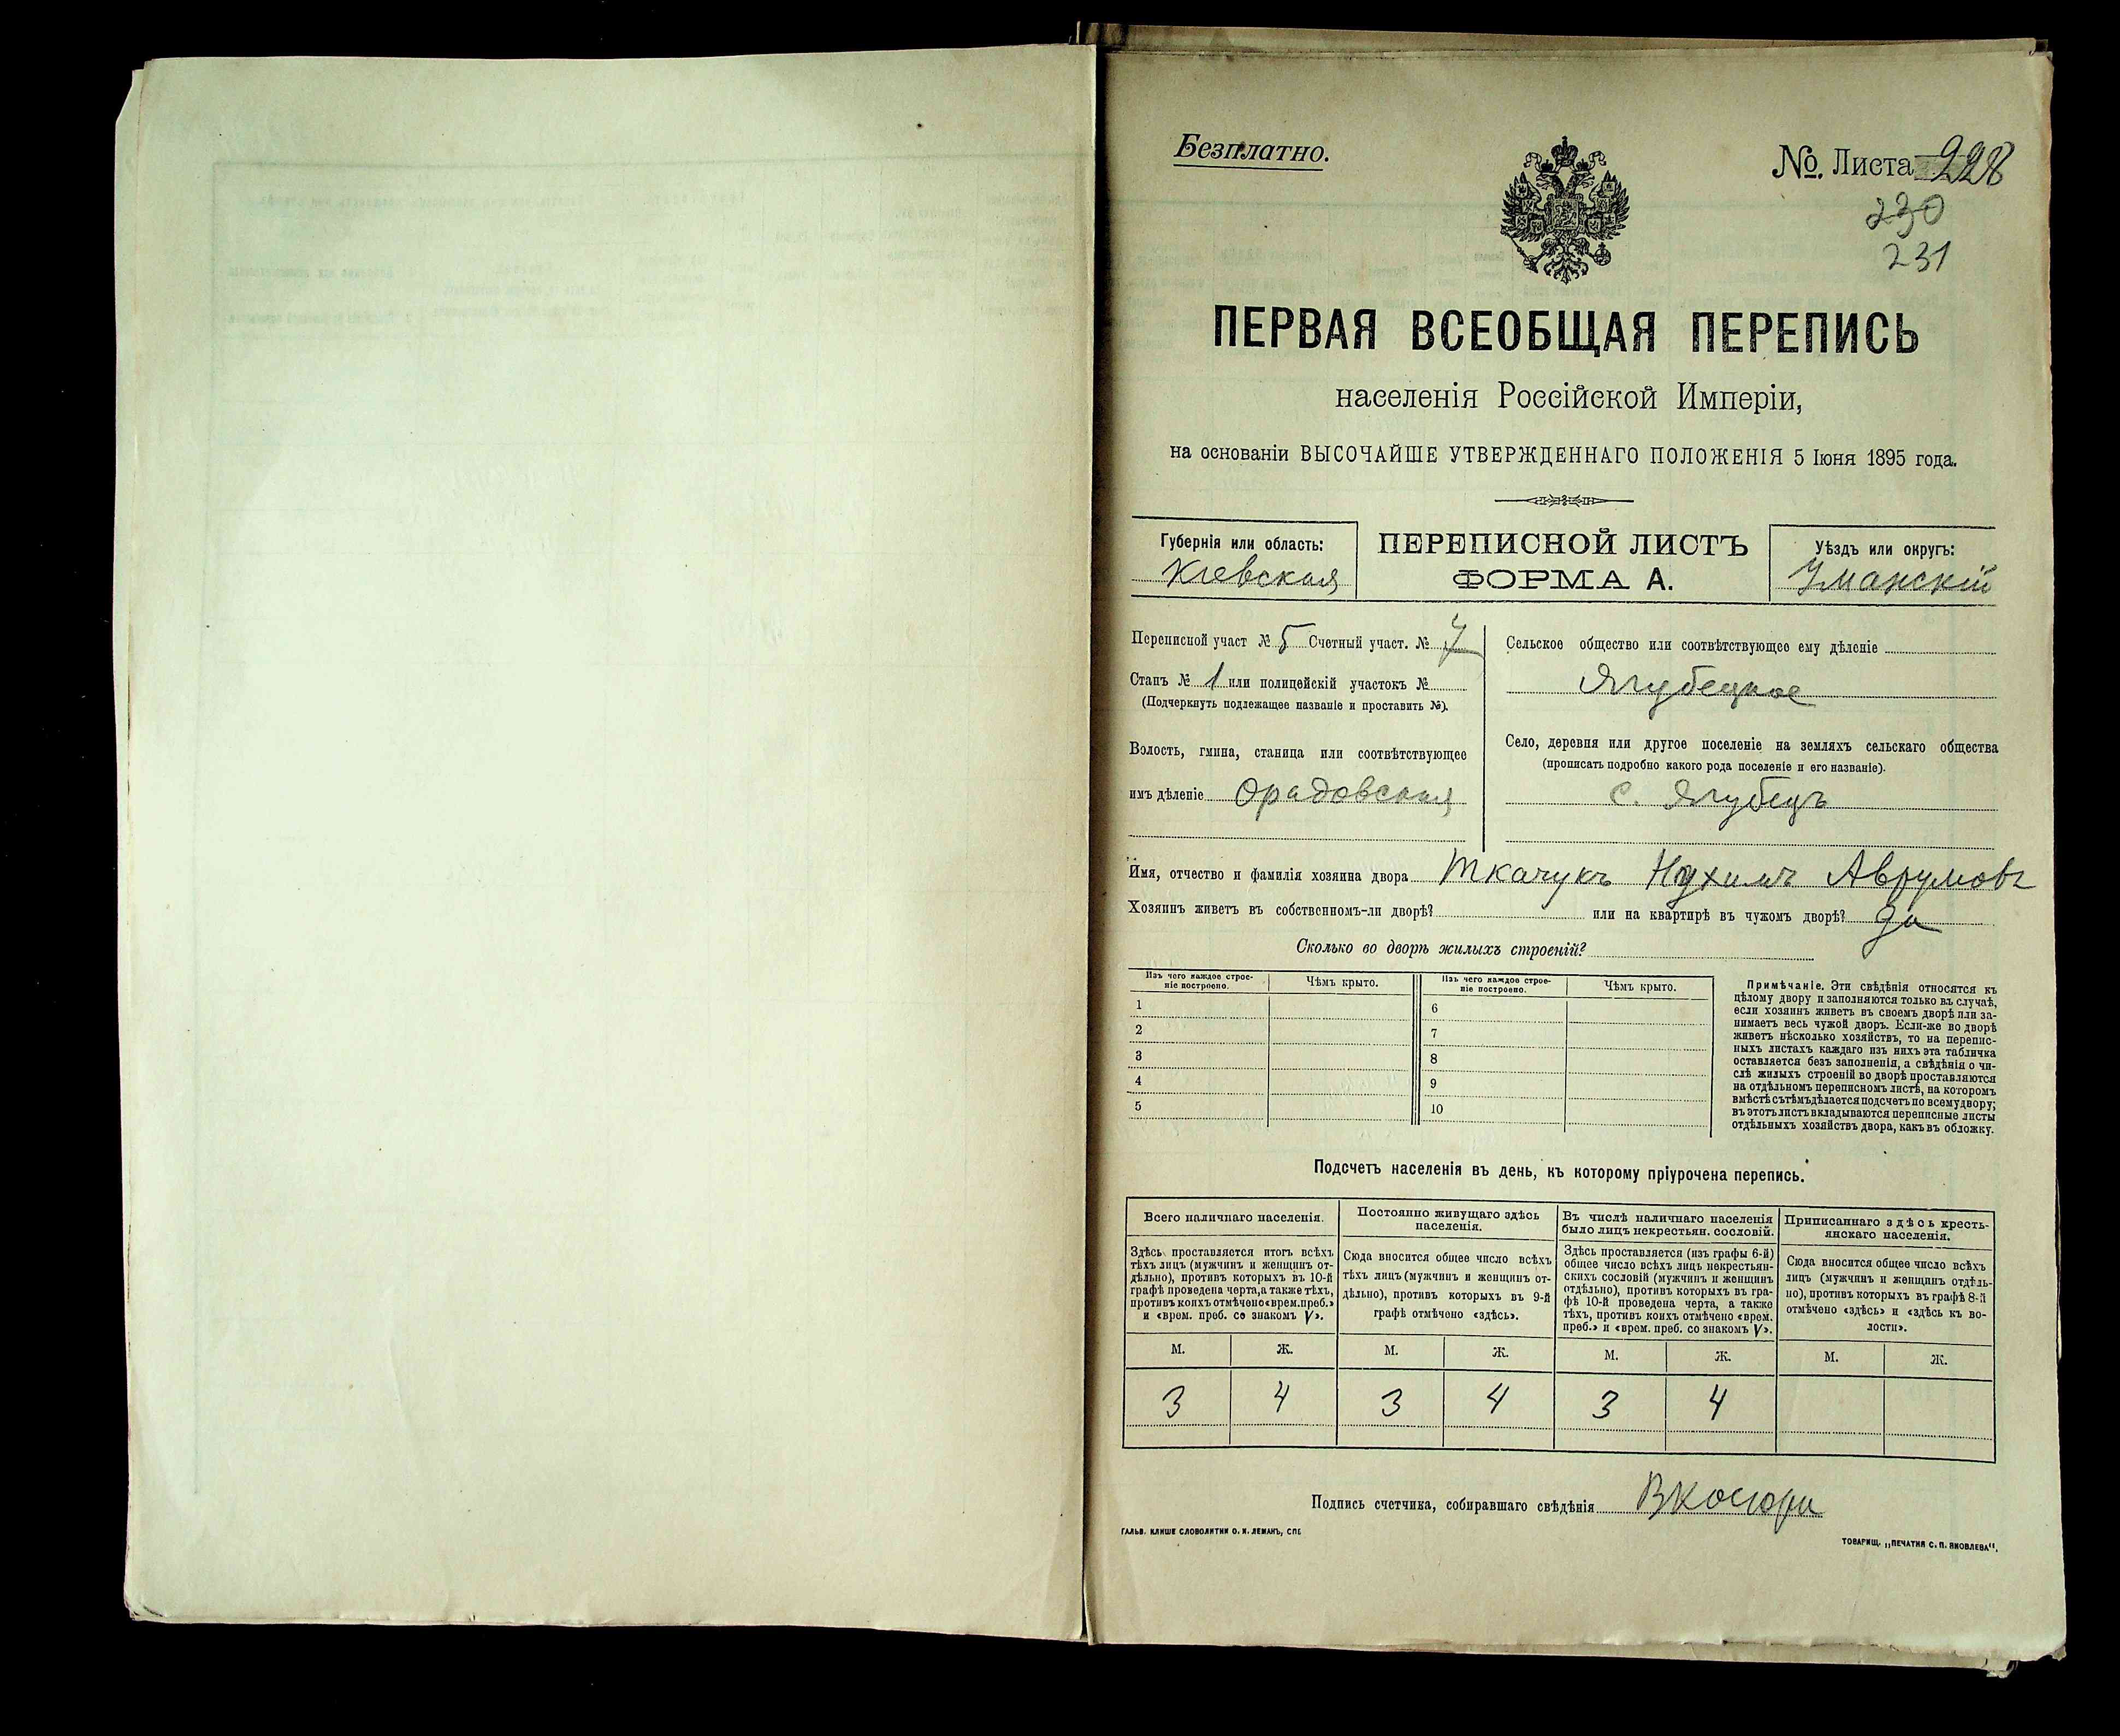 Безплатно.
№. Листа 228
230
231
ПЕРВАЯ ВСЕОБЩАЯ ПЕРЕПИСЬ
населенія Россійской Имперіи,
на основаніи ВЫСОЧАЙШЕ УТВЕРЖДЕННАГО ПОЛОЖЕНІЯ 5 Іюня 1895 года.
Губернія или область:
Кіевская
ПЕРЕПИСНОЙ ЛИСТЪ
ФОРМА А.
Уѣздъ или округъ:
Уманскій
Переписной участ № 5 Счетный участ. № 7
Станъ № 1 или полицейскій участокъ №
(Подчеркнуть подлежащее названіе и проставить №).
Волость, гмина, станица или соотвѣтствующее
имъ дѣленіе Орадовская
Сельское общество или соотвѣтствующее ему дѣленіе
Ягубецкое
Село, деревня или другое поселеніе на земляхъ сельскаго общества
(прописать подробно какого рода поселеніе и его названіе).
с. Ягубецъ
Имя, отчество и фамилія хозяина двора Ткачукъ Нухимъ Аврумовъ
Хозяинъ живетъ въ собственномъ-ли дворѣ? или на квартирѣ въ чужомъ дворѣ? да
Сколько во дворѣ жилыхъ строеній?
Изъ чего каждое строе-
ніе построено.
Чѣмъ крыто.
Изъ чего каждое строе-
ніе построено.
Чѣмъ крыто.
1
2
3
4
5
6
7
8
9
10
Примѣчаніе. Эти свѣдѣнія относятся къ
цѣлому двору и заполняются только въ случаѣ,
если хозяинъ живетъ въ своемъ дворѣ или за-
нимаетъ весь чужой дворъ. Если-же во дворѣ
живетъ нѣсколько хозяйствъ, то на перепис-
ныхъ листахъ каждаго изъ нихъ эта табличка
оставляется безъ заполненія, а свѣдѣнія о чи-
слѣ жилыхъ строеній во дворѣ проставляются
на отдѣльномъ переписномъ листѣ, на которомъ
вмѣстѣ съ тѣмъ дѣлается подсчетъ по всему двору;
въ этотъ листъ вкладываются переписные листы
отдѣльныхъ хозяйствъ двора, какъ въ обложку.
Подсчетъ населенія въ день, къ которому пріурочена перепись.
Всего наличнаго населенія.
Здѣсь проставляется итогъ всѣхъ
тѣхъ лицъ (мужчинъ и женщинъ от-
дѣльно), противъ которыхъ въ 10-й
графѣ проведена черта, а также тѣхъ,
противъ коихъ отмѣчено «врем. преб.»
и «врем. преб. со знакомъ V».
Постоянно живущаго здѣсь
населенія.
Сюда вносится общее число всѣхъ
тѣхъ лицъ (мужчинъ и женщинъ от-
дѣльно), противъ которыхъ въ 9-й
графѣ отмѣчено «здѣсь».
Въ числѣ наличнаго населенія
было лицъ некрестьян. сословій.
Здѣсь проставляется (изъ графы 6-й)
общее число всѣхъ лицъ некрестьян-
скихъ сословій (мужчинъ и женщинъ
отдѣльно), противъ которыхъ въ гра-
фѣ 10-й проведена черта, а также
тѣхъ, противъ коихъ отмѣчено «врем.
преб.» и «врем. преб. со знакомъ V».
Приписаннаго здѣсь кресть-
янскаго населенія.
Сюда вносится общее число всѣхъ
лицъ (мужчинъ и женщинъ отдѣль-
но), противъ которыхъ въ графѣ 8-й
отмѣчено «здѣсь» и «здѣсь къ во-
лости».
М. Ж. М. Ж. М. Ж. М. Ж.
3 4 3 4 3 4
Подпись счетчика, собиравшаго свѣдѣнія
ГАЛЬВ. КЛИШЕ СЛОВОЛИТНИ О. И. ЛЕМАНЪ, СПБ
ТОВАРИЩ. „ПЕЧАТНЯ С. П. ЯКОВЛЕВА“.